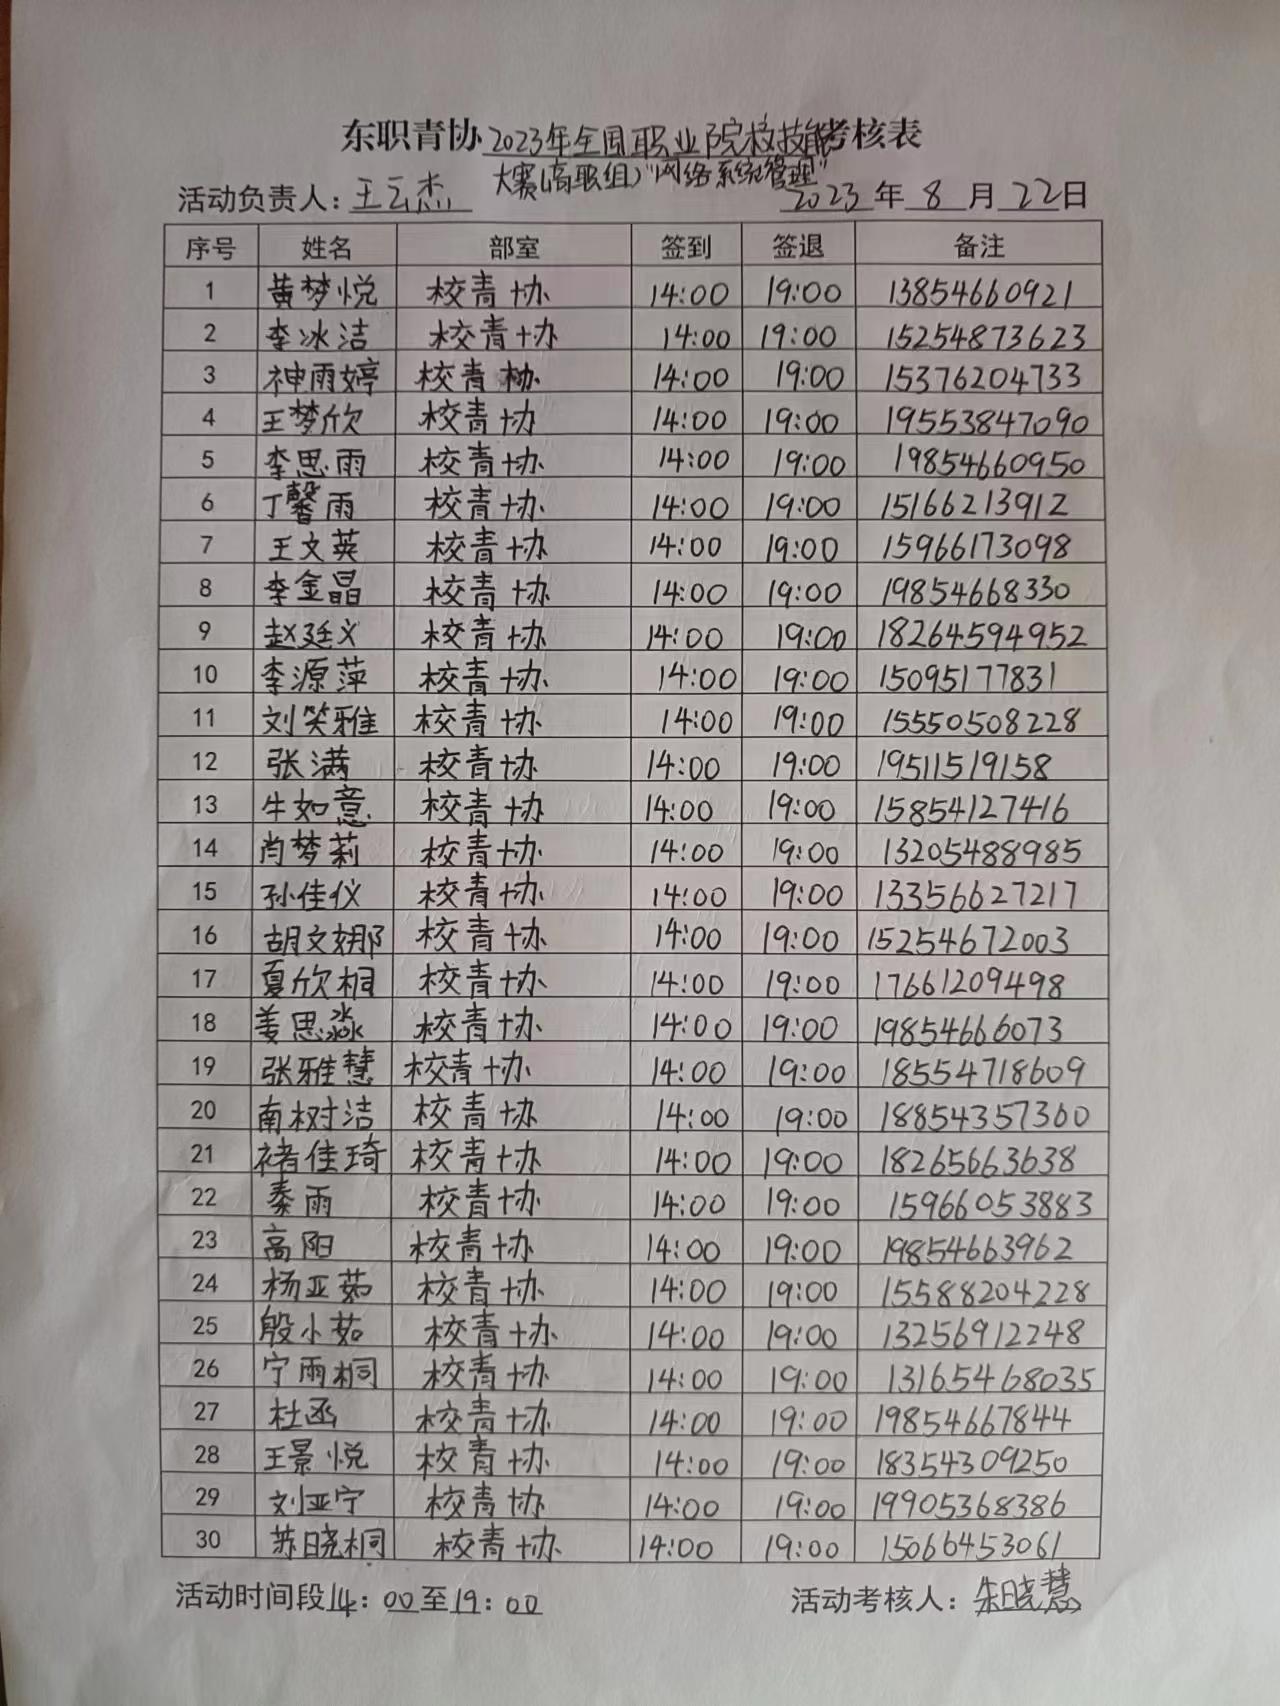 东职青协2023年全国职业院校技能考核表
大赛(高职组)"网络系统管理"
活动负责人：王云杰 2023年8月22日
序号 姓名 部室 签到 签退 备注
1 黄梦悦 校青协 14:00 19:00 13854660921
2 李冰洁 校青协 14:00 19:00 15254873623
3 神雨婷 校青协 14:00 19:00 15376204733
4 王梦欣 校青协 14:00 19:00 19553847090
5 李思雨 校青协 14:00 19:00 19854660950
6 丁馨雨 校青协 14:00 19:00 15166213912
7 王文英 校青协 14:00 19:00 15966173098
8 李金晶 校青协 14:00 19:00 19854668330
9 赵廷义 校青协 14:00 19:00 18264594952
10 李源萍 校青协 14:00 19:00 15095177831
11 刘笑雅 校青协 14:00 19:00 15550508228
12 张满 校青协 14:00 19:00 19511519158
13 牛如意 校青协 14:00 19:00 15854127416
14 肖梦莉 校青协 14:00 19:00 13205488985
15 孙佳仪 校青协 14:00 19:00 13356627217
16 胡文娜 校青协 14:00 19:00 15254672003
17 夏欣桐 校青协 14:00 19:00 17661209498
18 姜思淼 校青协 14:00 19:00 19854666073
19 张雅慧 校青协 14:00 19:00 18554718609
20 南树洁 校青协 14:00 19:00 18854357360
21 褚佳琦 校青协 14:00 19:00 18265663638
22 秦雨 校青协 14:00 19:00 15966053883
23 高阳 校青协 14:00 19:00 19854663962
24 杨亚茹 校青协 14:00 19:00 15588204228
25 殷小茹 校青协 14:00 19:00 13256912248
26 宁雨桐 校青协 14:00 19:00 13165468035
27 杜函 校青协 14:00 19:00 19854667844
28 王景悦 校青协 14:00 19:00 18354309250
29 刘亚宁 校青协 14:00 19:00 19905368386
30 苏晓桐 校青协 14:00 19:00 15066453061
活动时间段14：00至19：00 活动考核人：朱晓慧